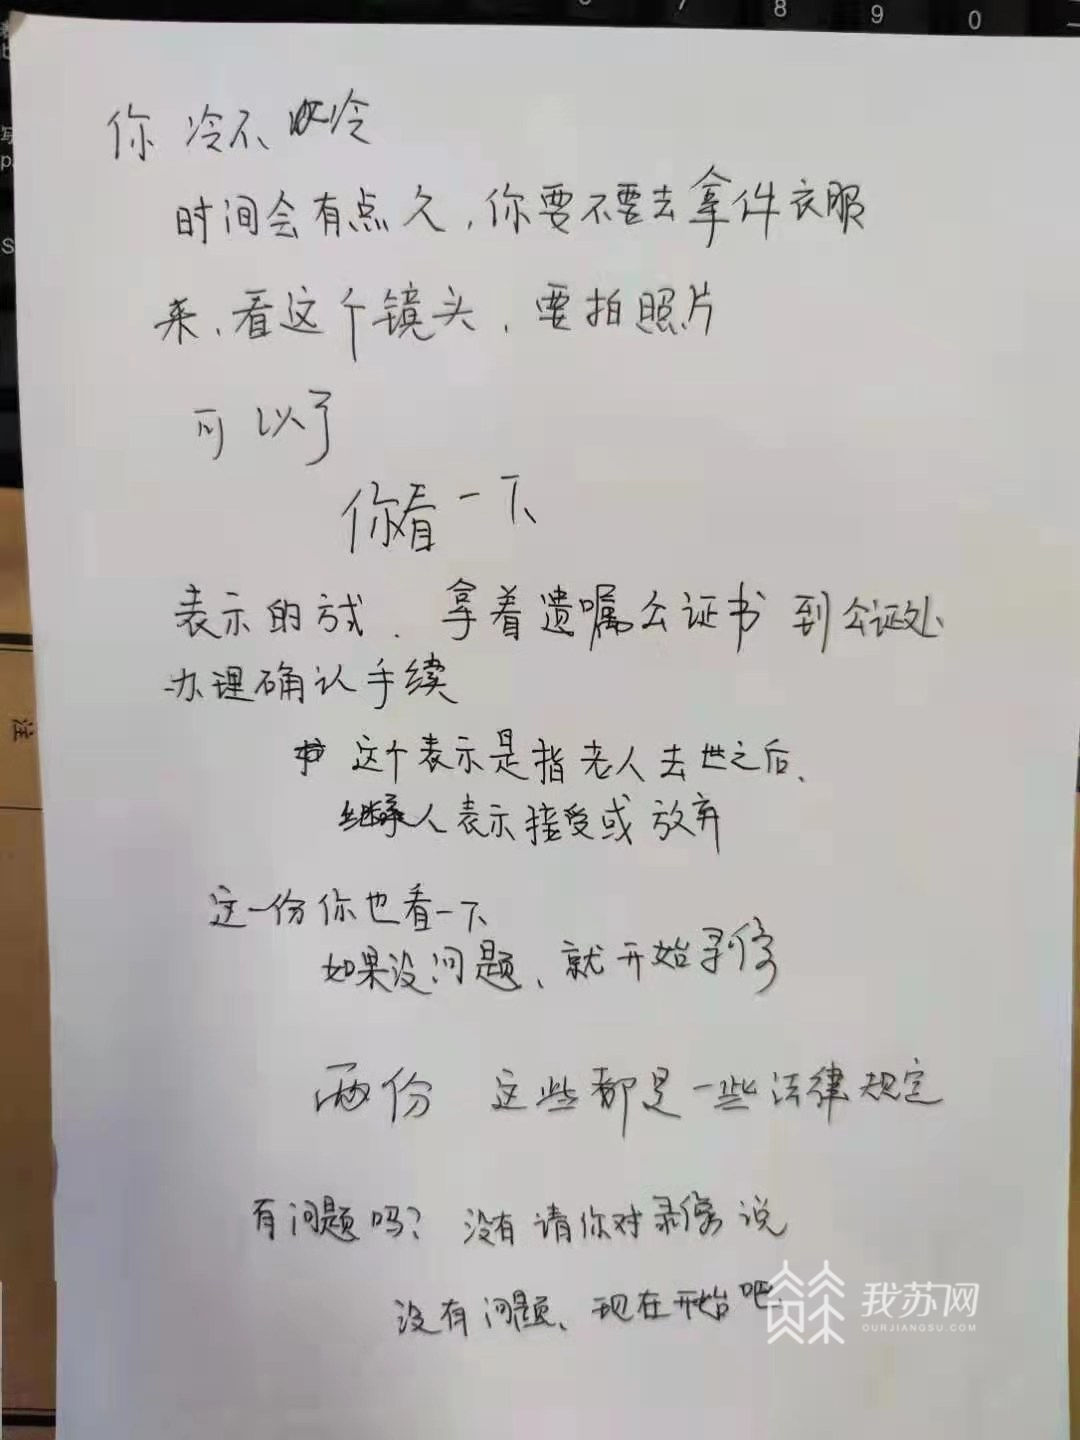 7 8 9 0
你 冷不冷
时间会有点久,你要不要去拿件衣服
来、看这个镜头,要拍照片
可以了
你看一下
表示的方式. 拿着遗嘱公证书 到公证处
办理确认手续
这个表示是指老人去世之后、
继承人表示接受或放弃
这一份你也看一下
如果没问题、就开始录像
两份 这些都是一些法律规定
有问题吗? 没有请你对录像说
没有问题、现在开始吧
我苏网
OURJIANGSU.COM